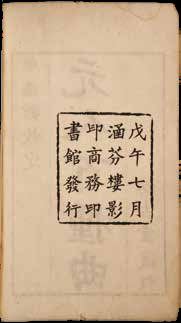 戊午七月
涵芬樓影
印商務印
書館發行